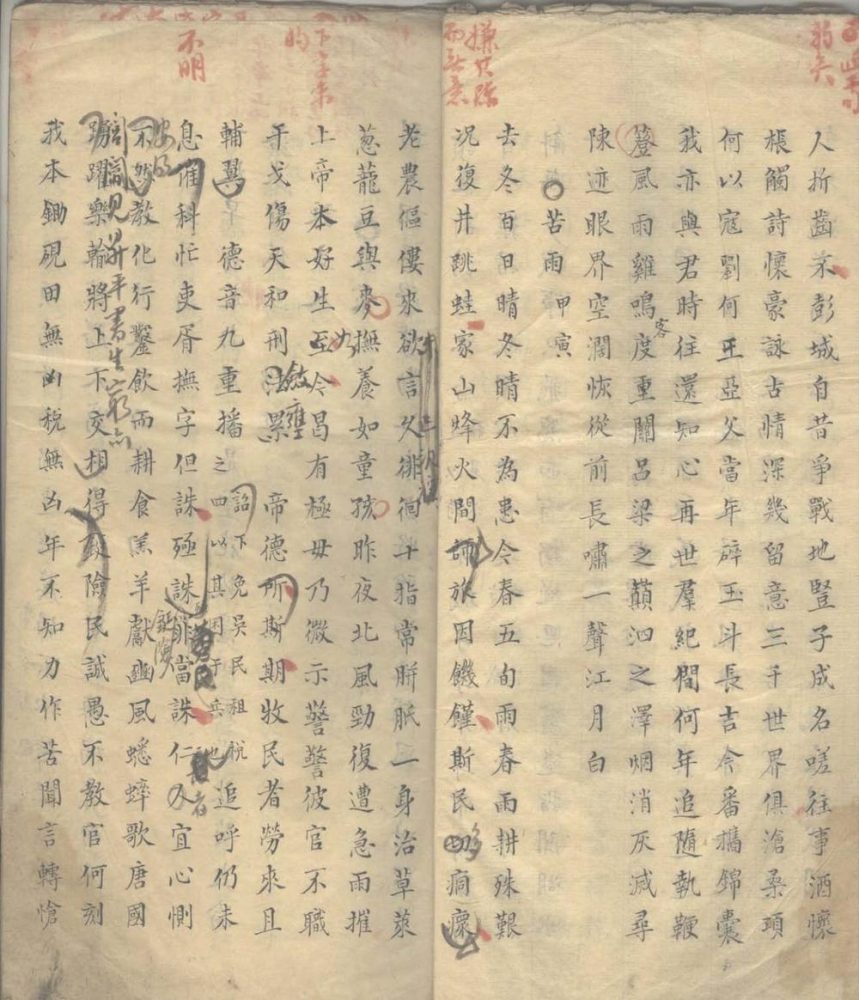 人折齒不彭城自昔爭戰地豎子成名嗟往事酒懷
棖觸詩懷豪詠古情深幾留意三千世界俱滄桑項
何以寇劉何王亞父當年碎玉斗長吉今番攜錦囊
我亦與君時往還知心再世羣紀間何年追隨執鞭
簦風雨雞鳴度重關呂梁之巔泗之澤烟消灰滅尋
客
陳迹眼界空濶恢從前長嘯一聲江月白
苦雨甲寅
去冬百日晴冬晴不為患今春五旬雨春雨耕殊艱
況復井跳蛙家山蜂火間師旅因饑饉斯民痌瘝
老農傴僂來欲言久徘徊十指常胼胝一身治草萊
蔥蘢豆與麥撫養如童孩昨夜北風勁復遭急雨摧
上帝本好生至今昌有極毋乃微示警警彼官不職
干戈傷天和刑法累帝德所斯期牧民者勞來且
輔翼德音九重播之詔下免吳民租稅四以其困于兵也追呼仍未
息催科忙吏胥撫字但誅殛誅罪當誅仁人宜心惻
不然教化行鑿飲而耕食羔羊獻豳風蟋蟀歌唐國
踴躍樂輸將上下交相得險民誠愚不教官何刻
見昇平書生
我本鋤硯田無凶稅無凶年不知力作苦聞言轉愴
不明